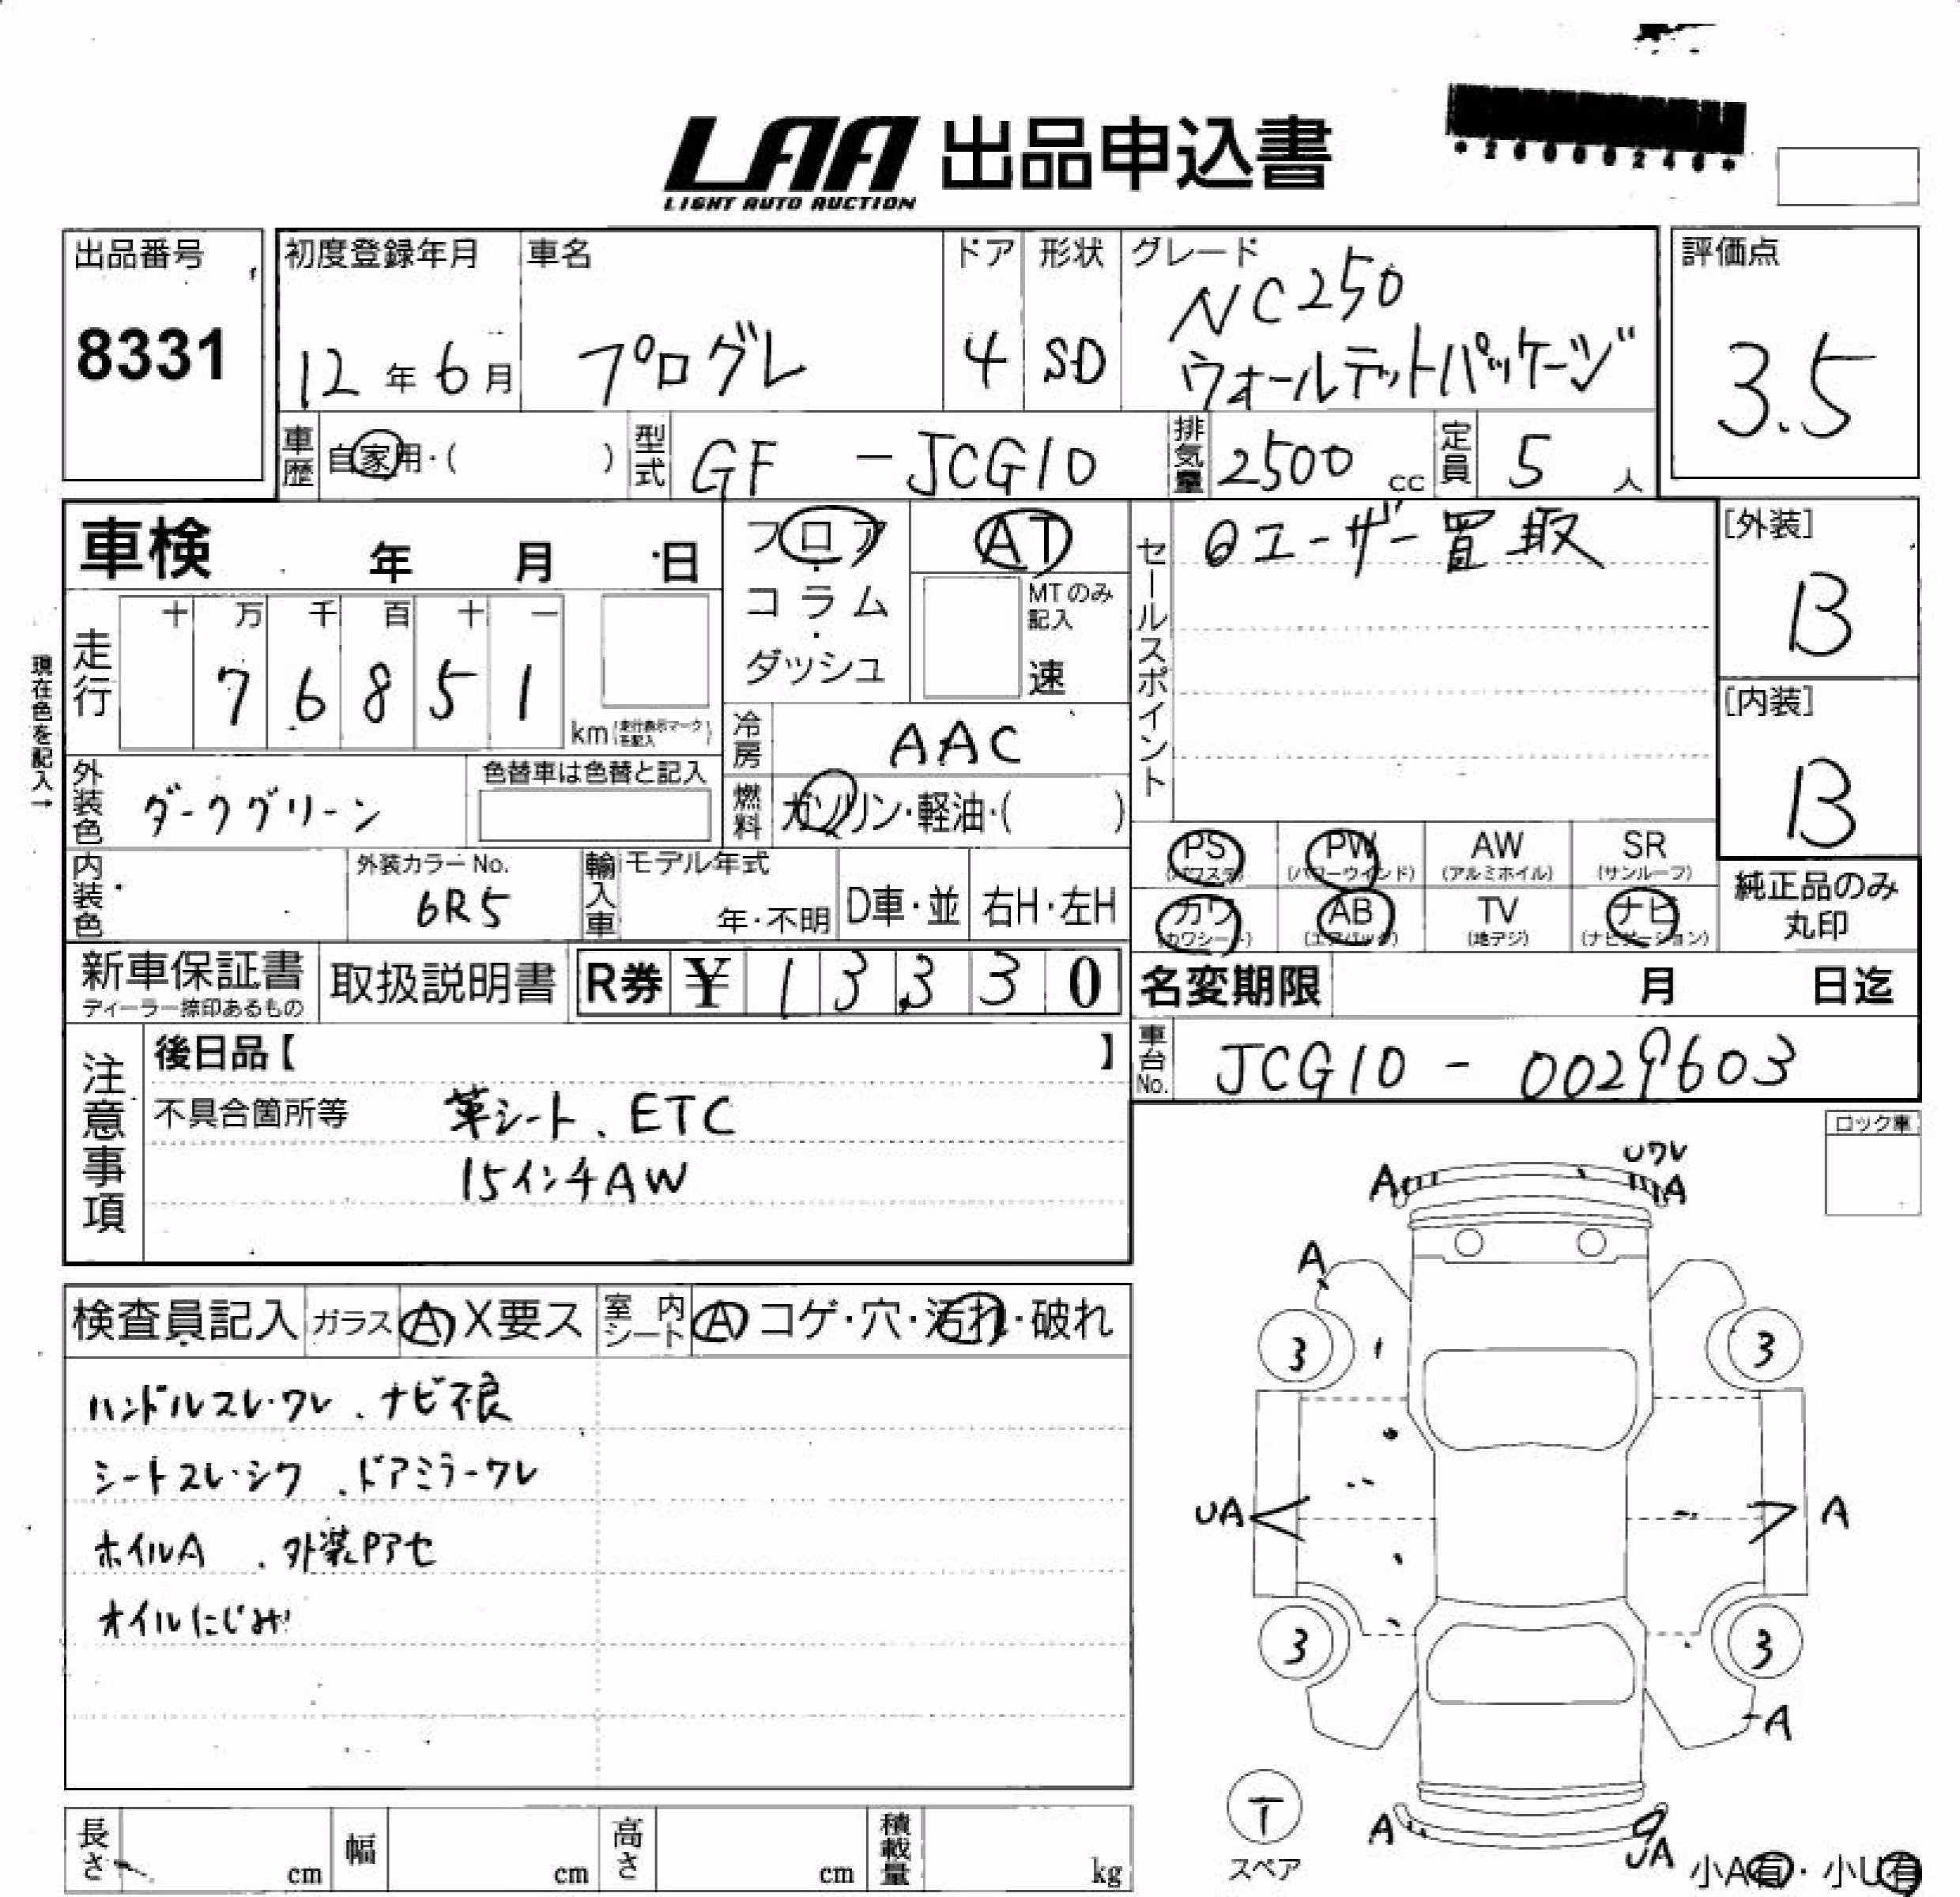 LAA 出品申込書
LIGHT AUTO AUCTION
出品番号
8331
初度登録年月
12年6月
車名
プログレ
ドア
4
形状
SD
グレード
NC250
ウォールナットパッケージ
評価点
3.5
車歴
自家用・( )
型式
GF - JCG10
排気量
2500 cc
定員
5 人
車検 年 月 日
フロア
・
コラム
・
ダッシュ
AT
MTのみ
記入
速
セールスポイント
◎ユーザー買取
[外装]
B
[内装]
B
現在色を記入→
走行
十 万 千 百 十 一
7 6 8 5 1
km(走行表示マークを記入)
冷房
AAC
外装色
ダークグリーン
色替車は色替と記入
燃料
ガソリン・軽油・( )
内装色
外装カラーNo.
6R5
輸入車
モデル年式
年・不明
D車・並
右H・左H
PS
(パワステ)
PW
(パワーウインド)
AW
(アルミホイル)
SR
(サンルーフ)
カワ
(カワシート)
AB
(エアバッグ)
TV
(地デジ)
ナビ
(ナビゲーション)
純正品のみ
丸印
新車保証書
ディーラー捺印あるもの
取扱説明書
R券 ¥ 1 3 3 3 0
名変期限 月 日迄
車台No.
JCG10 - 0029603
注意事項
後日品【 】
不具合箇所等 革シート、ETC
15インチAW
ロック車
検査員記入
ガラス A X要ス
室内シート A コゲ・穴・汚れ・破れ
ハンドルスレ・ワレ、ナビ不良
シートスレ・シワ、ドアミラーワレ
ホイルA、外装Pアセ
オイルにじみ
Uワレ
A
A
A
3
3
UA
A
3
3
A
T
スペア
A
UA
小A有・小U有
長さ cm
幅 cm
高さ cm
積載量 kg